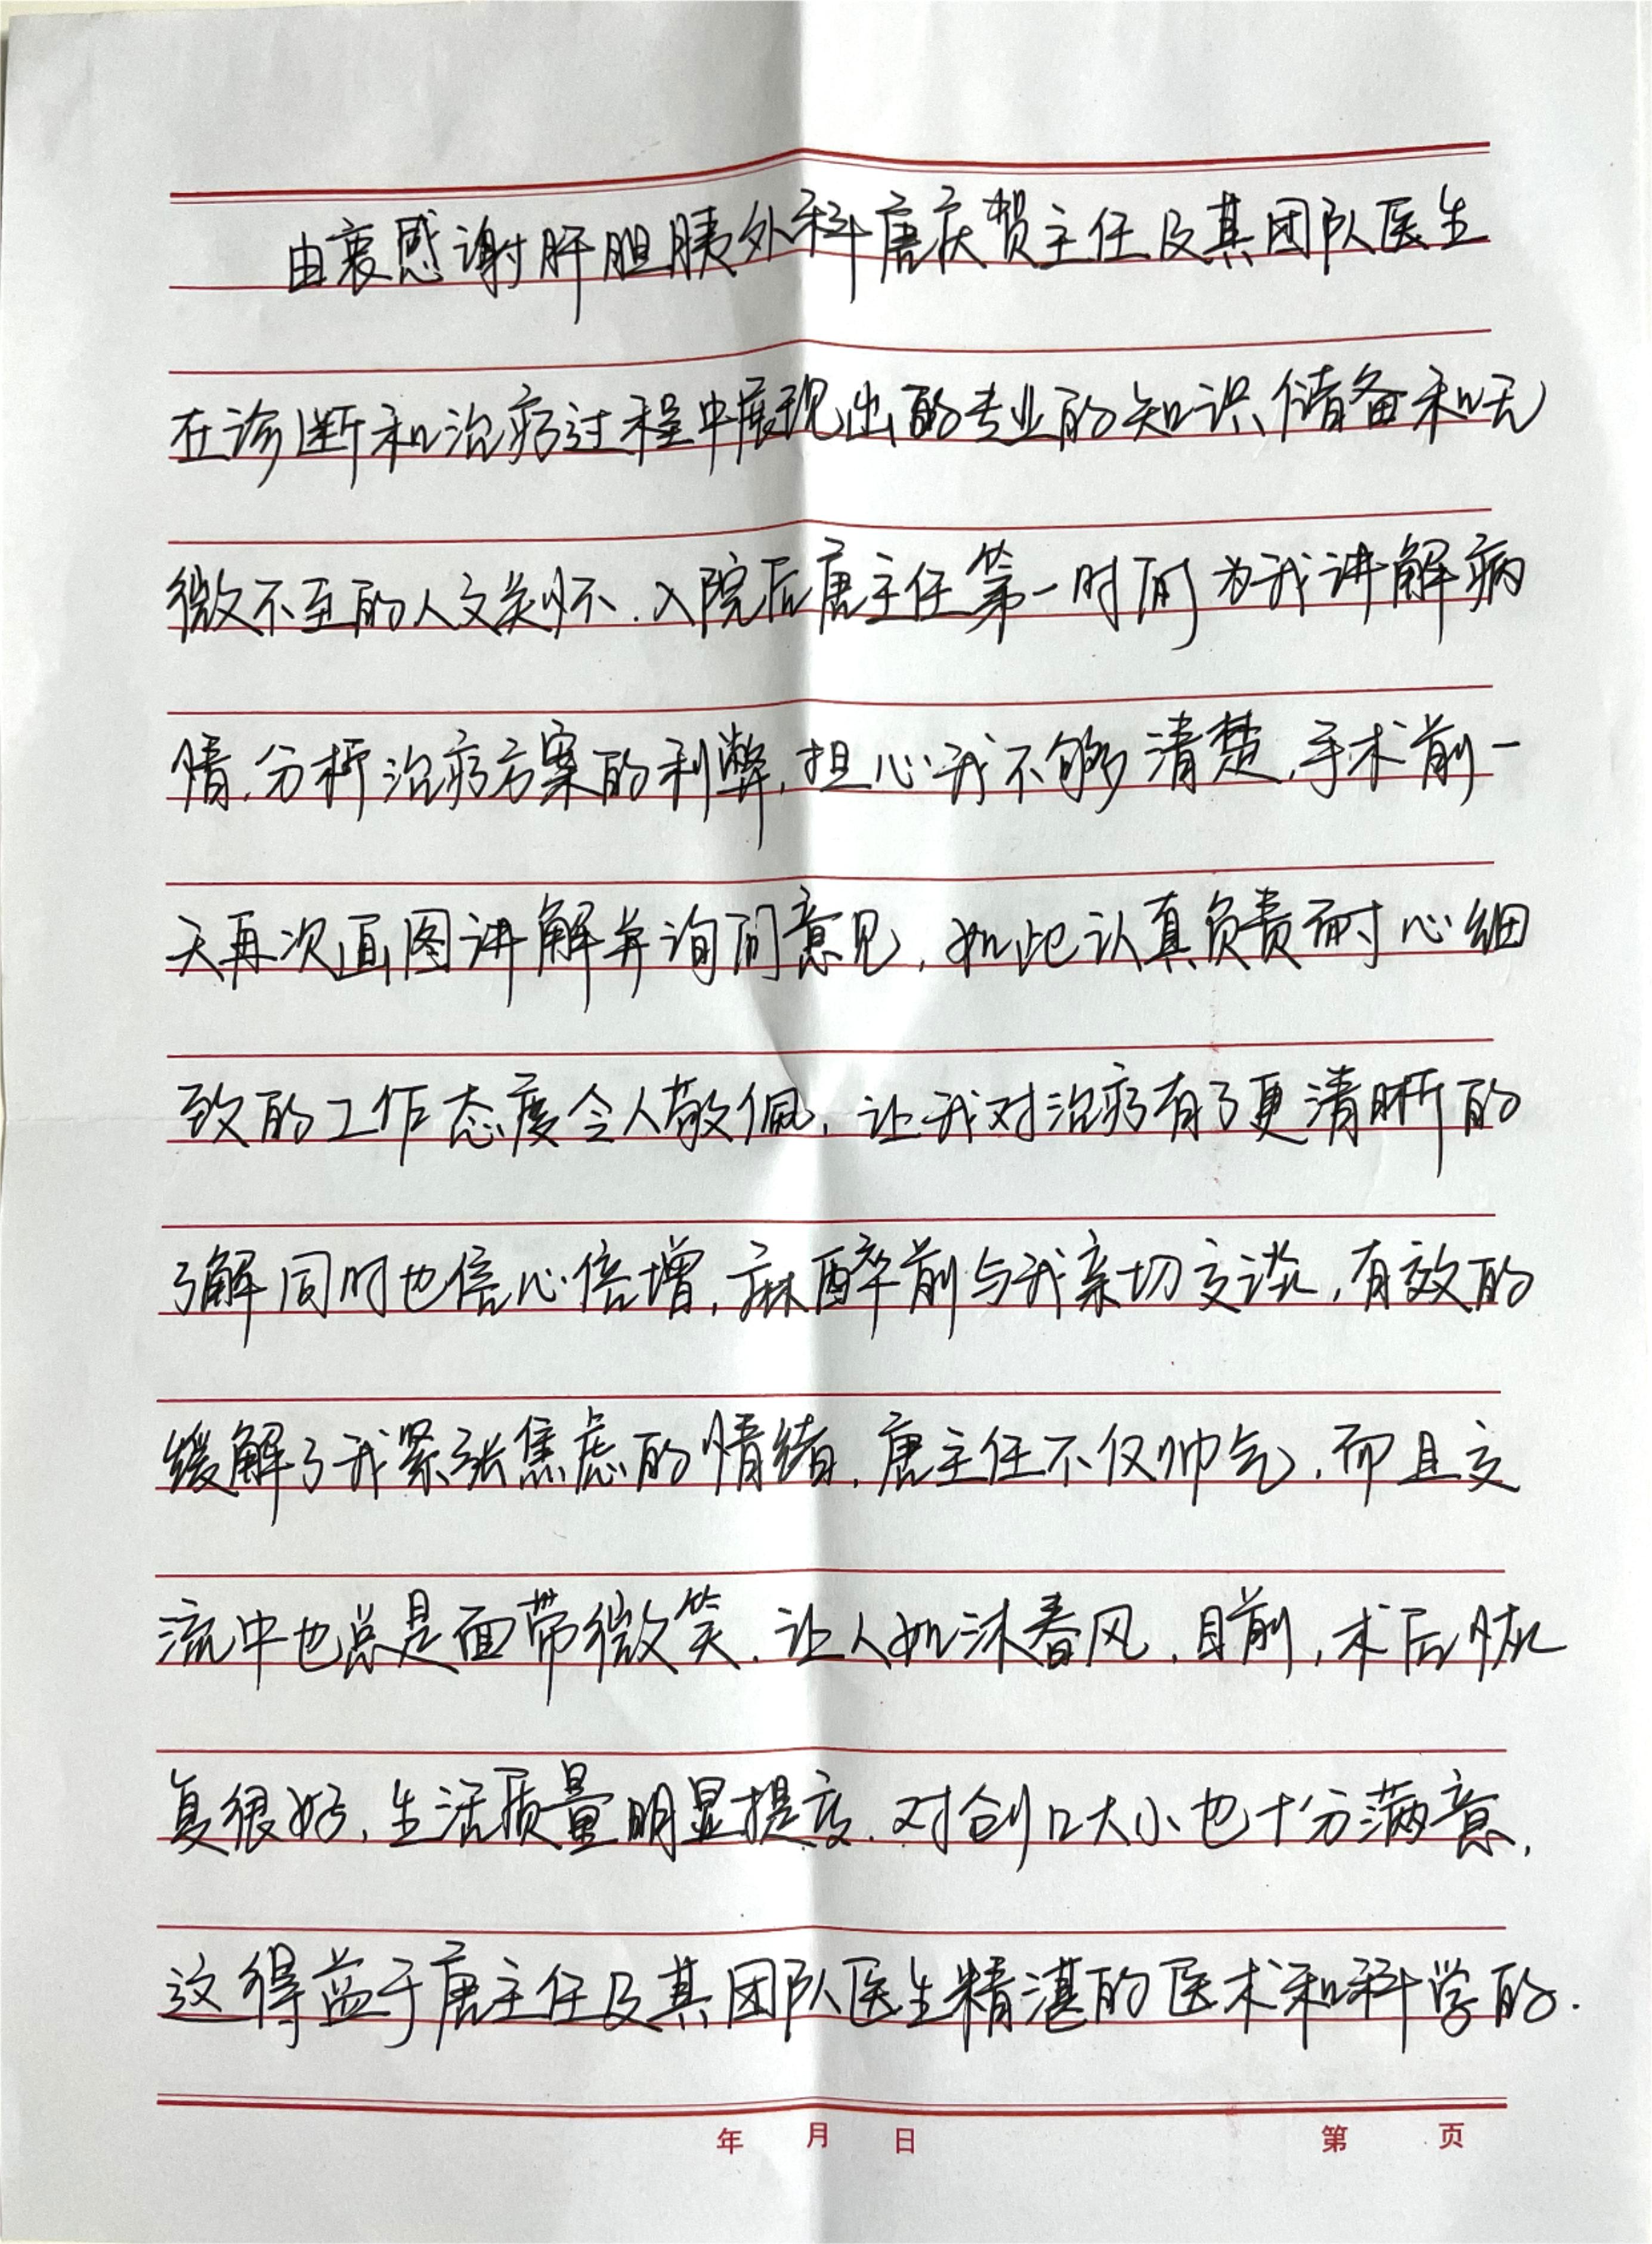 由衷感谢肝胆胰外科唐庆贺主任及其团队医生
在诊断和治疗过程中展现出的专业的知识储备和无
微不至的人文关怀.入院后唐主任第一时间为我讲解病
情,分析治疗方案的利弊,担心我不够清楚,手术前一
天再次画图讲解并询问意见,如此认真负责耐心细
致的工作态度令人敬佩,让我对治疗有了更清晰的
了解同时也信心倍增,麻醉前与我亲切交谈,有效的
缓解了我紧张焦虑的情绪,唐主任不仅帅气,而且交
流中也总是面带微笑.让人如沐春风.目前,术后恢
复很好,生活质量明显提高.对创口大小也十分满意,
这得益于唐主任及其团队医生精湛的医术和科学的.
年 月 日 第 页